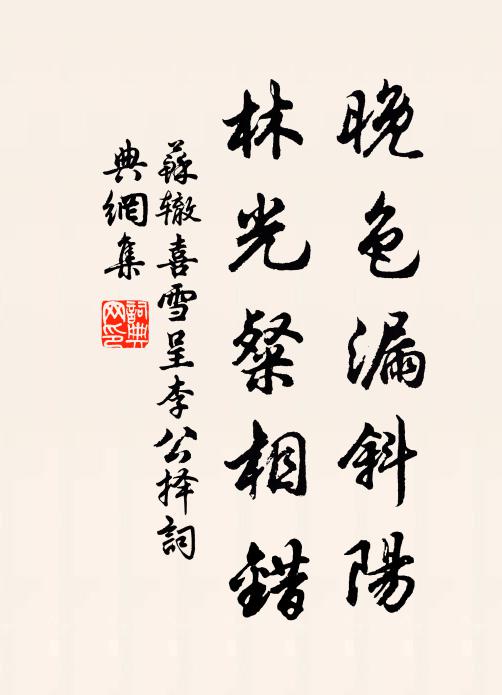 晚色漏斜陽
林光粲相錯
蘇辙喜雪呈李公择詞
典網集
詞典網印